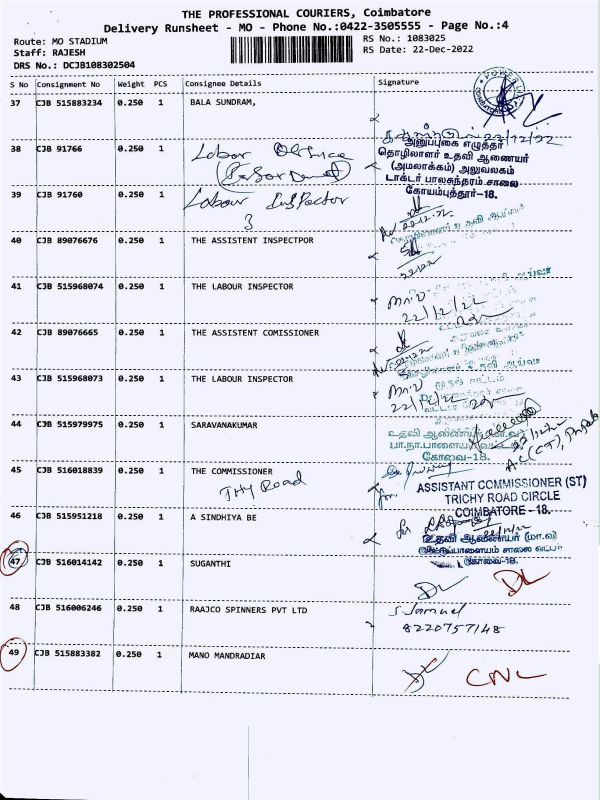 THE PROFESSIONAL COURIERS, Coimbatore
Delivery Runsheet - MO - Phone No.:0422-3505555 - Page No.:4
Route: MO STADIUM
RS No.: 1083025
Staff: RAJESH
RS Date: 22-Dec-2022
DRS No.: DCJB108302504
S No Consignment No Weight PCS Consignee Details Signature
37 CJB 515883234 0.250 1 BALA SUNDRAM,
22/12/22
38 CJB 91766 0.250 1 Labor Office
அனுப்புகை எழுத்தர்
தொழிலாளர் உதவி ஆணையர்
(அமலாக்கம்) அலுவலகம்
டாக்டர் பாலசுந்தரம் சாலை
கோயம்புத்தூர்-18.
39 CJB 91760 0.250 1 Labour Inspector
3
22-12-22
40 CJB 89076676 0.250 1 THE ASSISTENT INSPECTPOR
22/22
41 CJB 515968074 0.250 1 THE LABOUR INSPECTOR
22/12/22
42 CJB 89076665 0.250 1 THE ASSISTENT COMISSIONER
43 CJB 515968073 0.250 1 THE LABOUR INSPECTOR
22/12/22
44 CJB 515979975 0.250 1 SARAVANAKUMAR
கோவை-18.
45 CJB 516018839 0.250 1 THE COMMISSIONER
THY Road
for
ASSISTANT COMMISSIONER (ST)
TRICHY ROAD CIRCLE
COIMBATORE - 18.
46 CJB 515951218 0.250 1 A SINDHIYA BE
for
உதவி ஆணையர் (மா.வ)
கோவை-18.
47 CJB 516014142 0.250 1 SUGANTHI
DL DL
48 CJB 516006246 0.250 1 RAAJCO SPINNERS PVT LTD
S. Samuel
8220757148
49 CJB 515883382 0.250 1 MANO MANDRADIAR
CNL